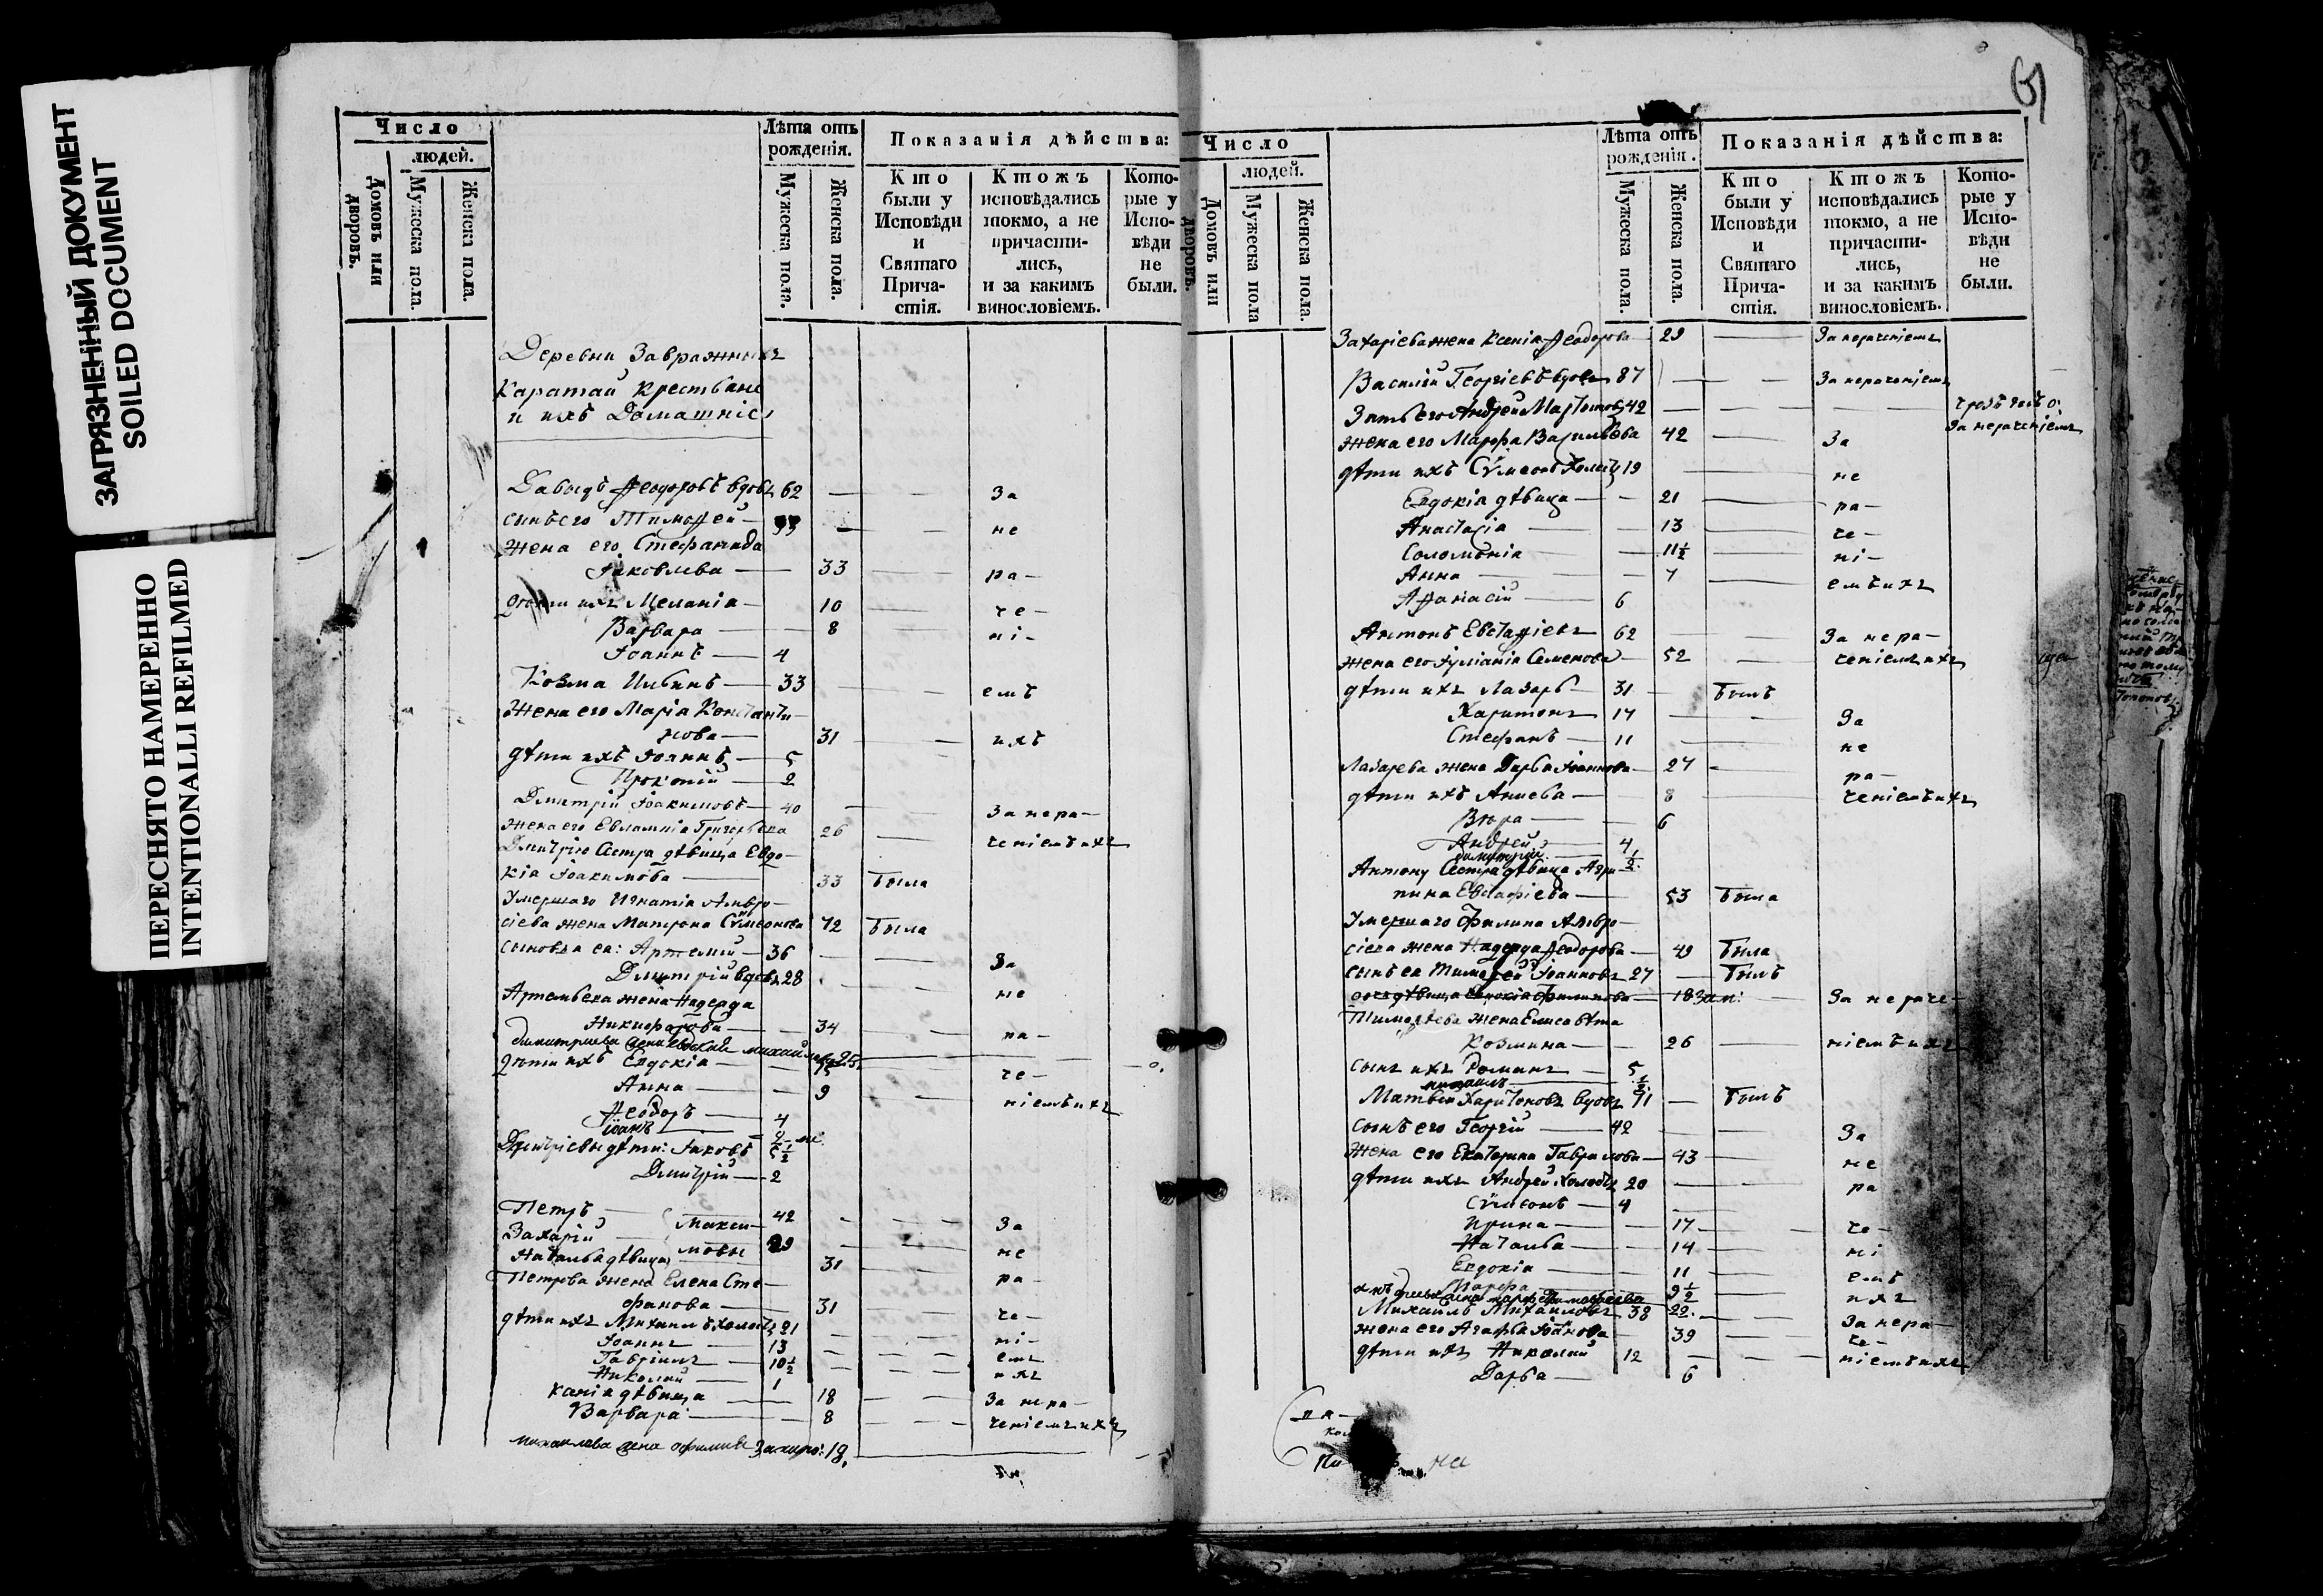 ЗАГРЯЗНЕННЫЙ ДОКУМЕНТ
SOILED DOCUMENT
ПЕРЕСНЯТО НАМЕРЕННО
INTENTIONALLI REFILMED
Число
людей.
Домовъ или дворовъ.
Мужеска пола.
Женска пола.
Лѣта отъ рожденія.
Мужеска пола.
Женска пола.
Показанія дѣйства:
Кто были у Исповѣди и Святаго Причастія.
Ктожъ исповѣдались токмо, а не причастились, и за какимъ винословіемъ.
Которые у Исповѣди не были.
Деревни Завражныхъ
Каратай Крестьяне
и ихъ Домашніе
Давыдъ Ѳеодоровъ вдовъ 62 — — За
сынъ его Тимоѳей — 33 — — не
жена его Стефанида
Іаковлева — 33 — ра-
дѣти ихъ Меланія — 10 — че-
Варвара — 8 — ні-
Іоаннъ — 4
Козма Ильинъ — 33 — — емъ
Жена его Марія Константи-
нова — 31 — — ихъ
дѣти ихъ Іоаннъ — 5
Прокопій — 2
Дмитрій Іоакимовъ — 40 — — За нера-
жена его Евлампіа Григорьева 26 — ченіемъ ихъ
Дмитрію Сестра дѣвица Евдо-
кіа Іоакимова — 33 Была
Умершаго Игнатія Амвро-
сіева жена Матрона Сѷмеонова 72 Была
сыновья ея: Артемій — 36 — — За
Дмитрій вдовъ 28 — — не
Артемьева жена Надежда
Никифорова — 34 — — ра-
димитриева жена Евдокия михайлова 25.
дѣти ихъ Евдокіа — че-
Анна — 9 — ніемъ ихъ
Ѳеодоръ — 4
Іоанъ
Дмитріевы дѣти: Іаковъ 5½
Дмитрій — 2
Петръ — Макси- 42 — — За
Захарій — мовы 29 — — не
Наталья дѣвица 31 — ра-
Петрова жена Елена Сте-
фанова — 31 — че-
дѣти ихъ Михаилъ холостъ 21 — — ні-
Іоаннъ — 13 — — емъ
Гавріилъ — 10½ — — ихъ
Николай — 1
дѣвица — 18 — — За нера-
Варвара — 8 — — ченіемъ ихъ
михаилова жена 18.
Число
людей.
Домовъ или дворовъ.
Мужеска пола
Женска пола.
Лѣта отъ рожденія.
Мужеска пола.
Женска пола.
Показанія дѣйства:
Кто были у Исповѣди и Святаго Причастія.
Ктожъ исповѣдались токмо, а не причастились, и за какимъ винословіемъ.
Которые у Исповѣди не были.
Захаріева жена Ксенія Ѳеодорова — 29 — За нераченіемъ
Василій Георгіевъ вдовъ 87 — — За нераченіемъ
Зять его Андрей Мартиновъ 42 — — — За нераченіемъ
жена его Марфа Васильева 42 — За
дѣти ихъ Сѷмеонъ холостъ 19 — не
Евдокіа дѣвица — 21 — ра-
Анастасіа — 13 — че-
Соломоніа — 11½ — ні-
Анна — 7 — емъ ихъ
Аѳанасій — 6
Антонъ Евстаѳіевъ 62 — — За нера-
жена его Іуліанія Семенова — 52 — ченіемъ ихъ
дѣти ихъ Лазарь — 31 — Былъ
Харитонъ 17 — — За
Стефанъ — 11 — не
Лазарева жена Дарья Іоаннова — 27 — ра-
дѣти ихъ — 8 — ченіемъ ихъ
Вѣра — 6
Андрей — 4
димитрий — ½
Антону Сестра дѣвица Агри-
пина Евстафіева — 53 Была
Умершаго Филипа Амвро-
сіева жена Надежда Ѳеодорова — 49 Была
сынъ ея Тимоѳей Іоанновъ 27 — Былъ
дочь дѣвица 18 — За нераче-
Тимоѳеева жена Елисавѣта
Козмина — 26 — ніемъ ихъ
сынъ ихъ Романъ — 5
михаилъ — ½
Матвей Харитоновъ вдовъ 71 — Былъ
сынъ его Георгій — 42 — За
Жена его Екатерина Гаврилова — 43 — не
дѣти ихъ Андрей холостъ 20 — ра
Сѷмеонъ — 4
Ирина — 17 — че-
Наталья — 14 — ні
Евдокіа — 11 — емъ
Марфа — 9½ — ихъ
Тимофеева 22.
Михаилъ Михаиловъ 38 — — За нера-
жена его Агафья Іоанова 39 — че-
дѣти ихъ Николай 12 — — ніемъ ихъ
Дарья — 6